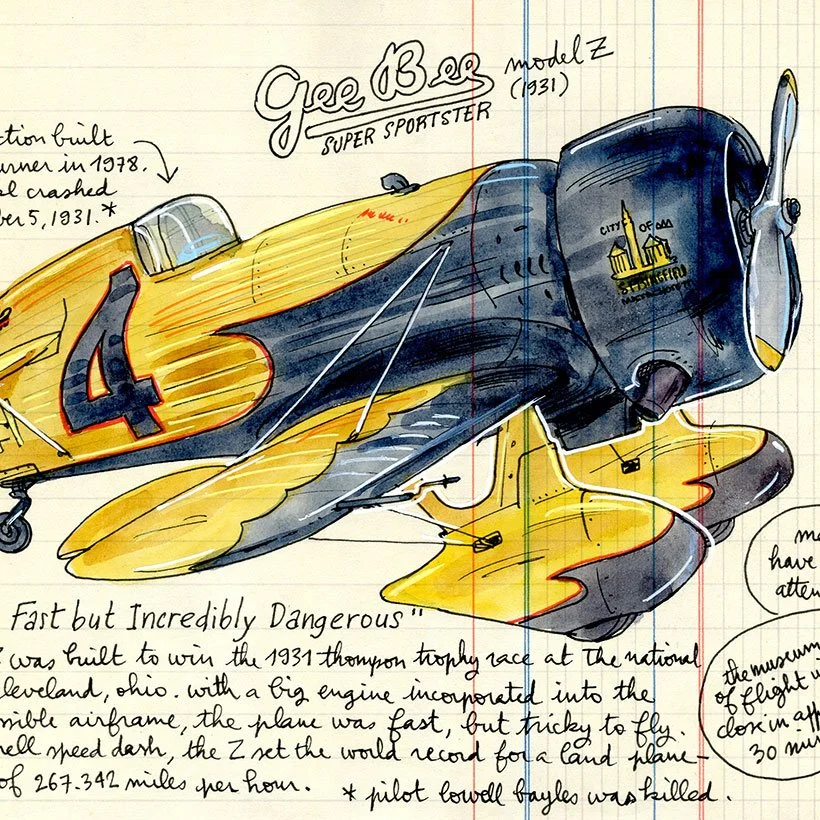 Gee Bee model Z
(1931)
SUPER SPORTSTER
ction built
urner in 1978.
l crashed
ber 5, 1931.*
CITY OF
SPRINGFIELD
4
Fast but Incredibly Dangerous"
Z was built to win the 1931 thompson trophy race at the national
leveland, ohio. with a big engine incorporated into the
ssible airframe, the plane was fast, but tricky to fly.
hell speed dash, the Z set the world record for a land plane-
of 267.342 miles per hour. * pilot lowell bayles was killed.
have
atten
the museum
of flight
close in app
30 min